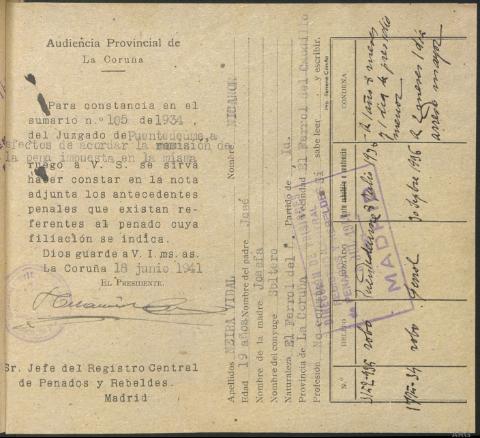 Audiencia Provincial de
La Coruña
Para constancia en el
sumario n.º 105 de 1934,
del Juzgado de Puentedeume, a
efectos de acordar la remisión de
la pena impuesta en la misma
ruego a V. S. se sirva
hacer constar en la nota
adjunta los antecedentes
penales que existan re-
ferentes al penado cuya
filiación se indica.
Dios guarde a V. I. ms. as.
La Coruña 18 junio 1941
EL PRESIDENTE.
Sr. Jefe del Registro Central
de Penados y Rebeldes.
Madrid
Apellidos NEIRA VIDAL Nombre NICANOR
Edad 19 años Nombre del padre José
Nombre de la madre Josefa
Nombre del conyuge Soltero
Naturaleza El Ferrol del C. Partido de Id.
Provincia de La Coruña Vecindad El Ferrol del Caudillo
Profesión No sabe leer y escribir.
N.º DELITO JUZGADO CONDENA
robo 1936 2 años 4 meses
y 1 dia de presidio
menor
robo Ferrol 1936 2 meses 1 dia
arresto mayor
MADRID